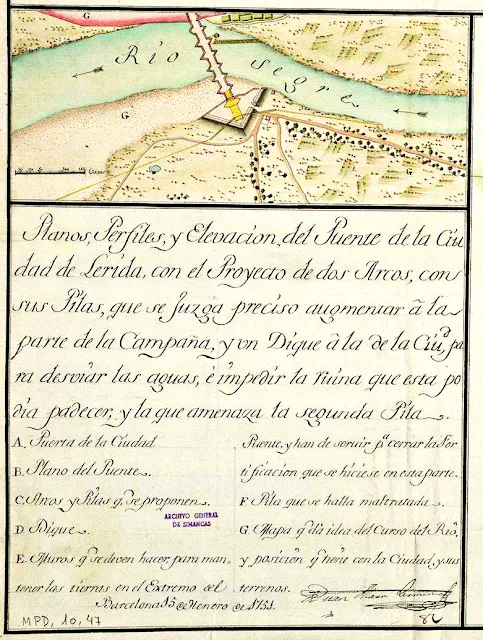 Rio Segre
G
G
Planos, Perfiles, y Elevacion, del Puente de la Ciu
dad de Lerida, con el Proyecto de dos Arcos, con
sus Pilas, que se Juzga preciso augmentar â la
parte de la Campaña, y vn Dique â la de la Ciu.ᵈ pa
ra desviar las aguas, è impedir la ruina que esta po
dia padecer, y la que amenaza la segunda Pila.
A. Puerta de la Ciudad.
B. Plano del Puente.
C. Arcos y Pilas q.ᵉ se proponen.
D. Dique.
E. Muros q.ᵉ se deven hacer, para man-
tener las tierras en el Extremo del
Puente, y han de servir p.ᵃ cerrar la For
tificacion que se hiciese en esta parte.
F Pila que se halla maltratada.
G. Mapa q.ᵉ dà idea del Curso del Rio,
y posicion q.ᵉ tiene con la Ciudad, y sus
terrenos.
Barcelona 15 de Henero de 1751.
Juan Martin
ARCHIVO GENERAL
DE SIMANCAS
MPD, 10, 47